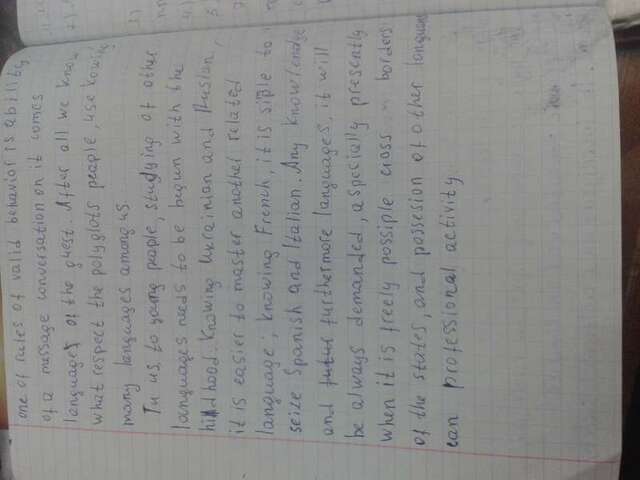 one of rules of valid behavior is ability
of a message conversation on it comes
languages of the guest. After all we know
what respect the polyglots people, use kowing
many languages among us.
Tu us, to young people, studying of other
languages needs to be begun with the
hildhood. Knowing Ukrainian and Rusian,
it is easier to master another related
language; knowing French, it is siple to
seize Spanish and Italian. Any knowledge
and futur furthermore languages, it will
be always demanded, a specially presently
when it is freely possiple cross borders
of the states, and possesion of other languag
can professional activity